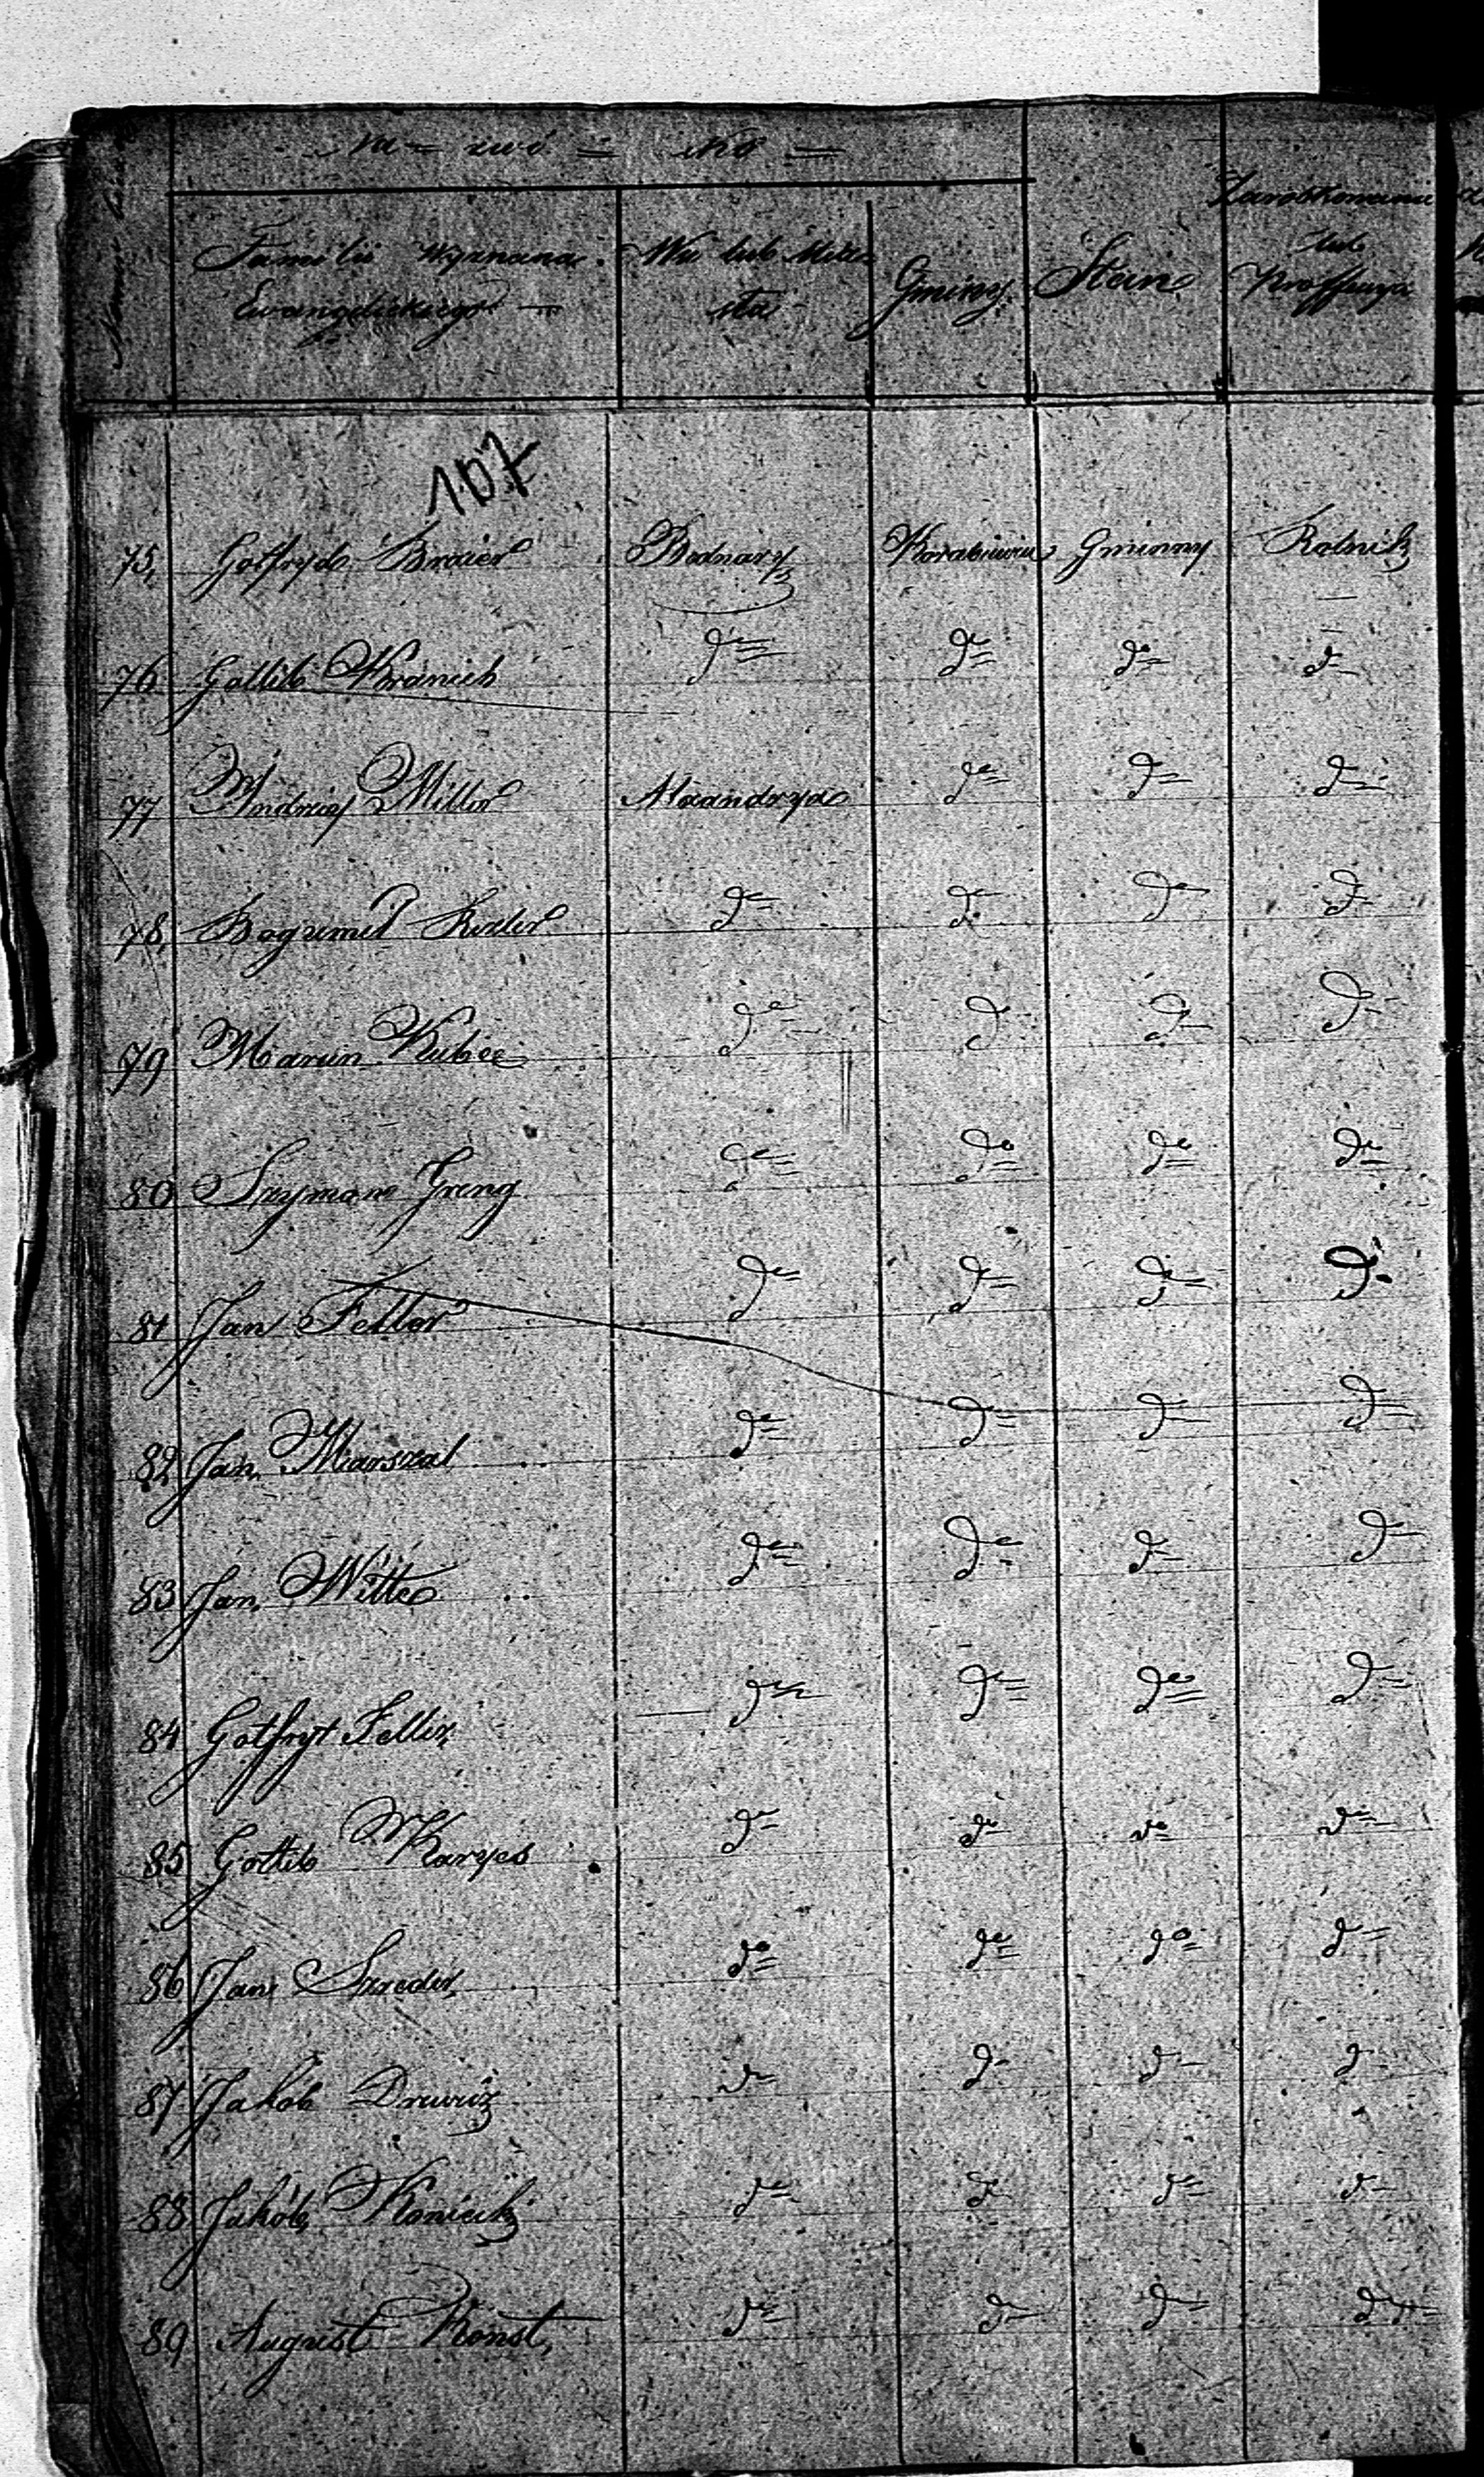 Na = zwi = sko =
Familii Wyznana Wsi lub Mia Zarobkowanie
Ewangelickiego sta Gminy Stan lub Proffesya
107
75, Gotfryd Braier Bednary Korabiewice Gminny Rolnik
76 Gotlib Kranich do do do do
77 Andrzej Miller Alexandrya do do do
78 Bogumił Kezler do do do do
79 Marcin Kubee do do do do
80 Szyman Greng do do do do
81 Jan Feller do do do do
82 Jan Marszal do do do do
83 Jan Witte do do do do
84 Gotfryt Feller do do do do
85 Gottlib Karyes do do do do
86 Jan Szreder do do do do
87 Jakob do do do do
88 Jakób Konicek do do do do
89 August Konst, do do do do